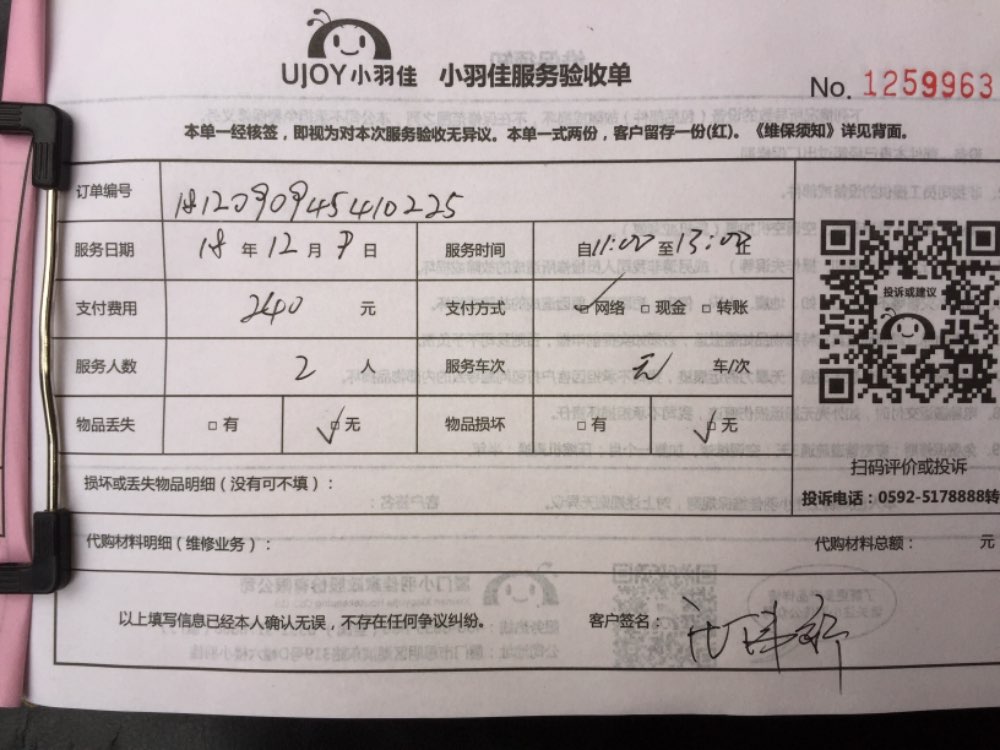 UJOY小羽佳 小羽佳服务验收单
No. 1259963
本单一经核签，即视为对本次服务验收无异议。本单一式两份，客户留存一份(红)。《维保须知》详见背面。
订单编号 1812090945410225
服务日期 18 年 12 月 9 日 服务时间 自11:00至13:00止
支付费用 240 元 支付方式 ☑网络 □现金 □转账
服务人数 2 人 服务车次 无 车/次
物品丢失 □有 ☑无 物品损坏 □有 ☑无
投诉或建议
扫码评价或投诉
投诉电话：0592-5178888转
损坏或丢失物品明细（没有可不填）：
代购材料明细（维修业务）： 代购材料总额： 元
以上填写信息已经本人确认无误，不存在任何争议纠纷。 客户签名：